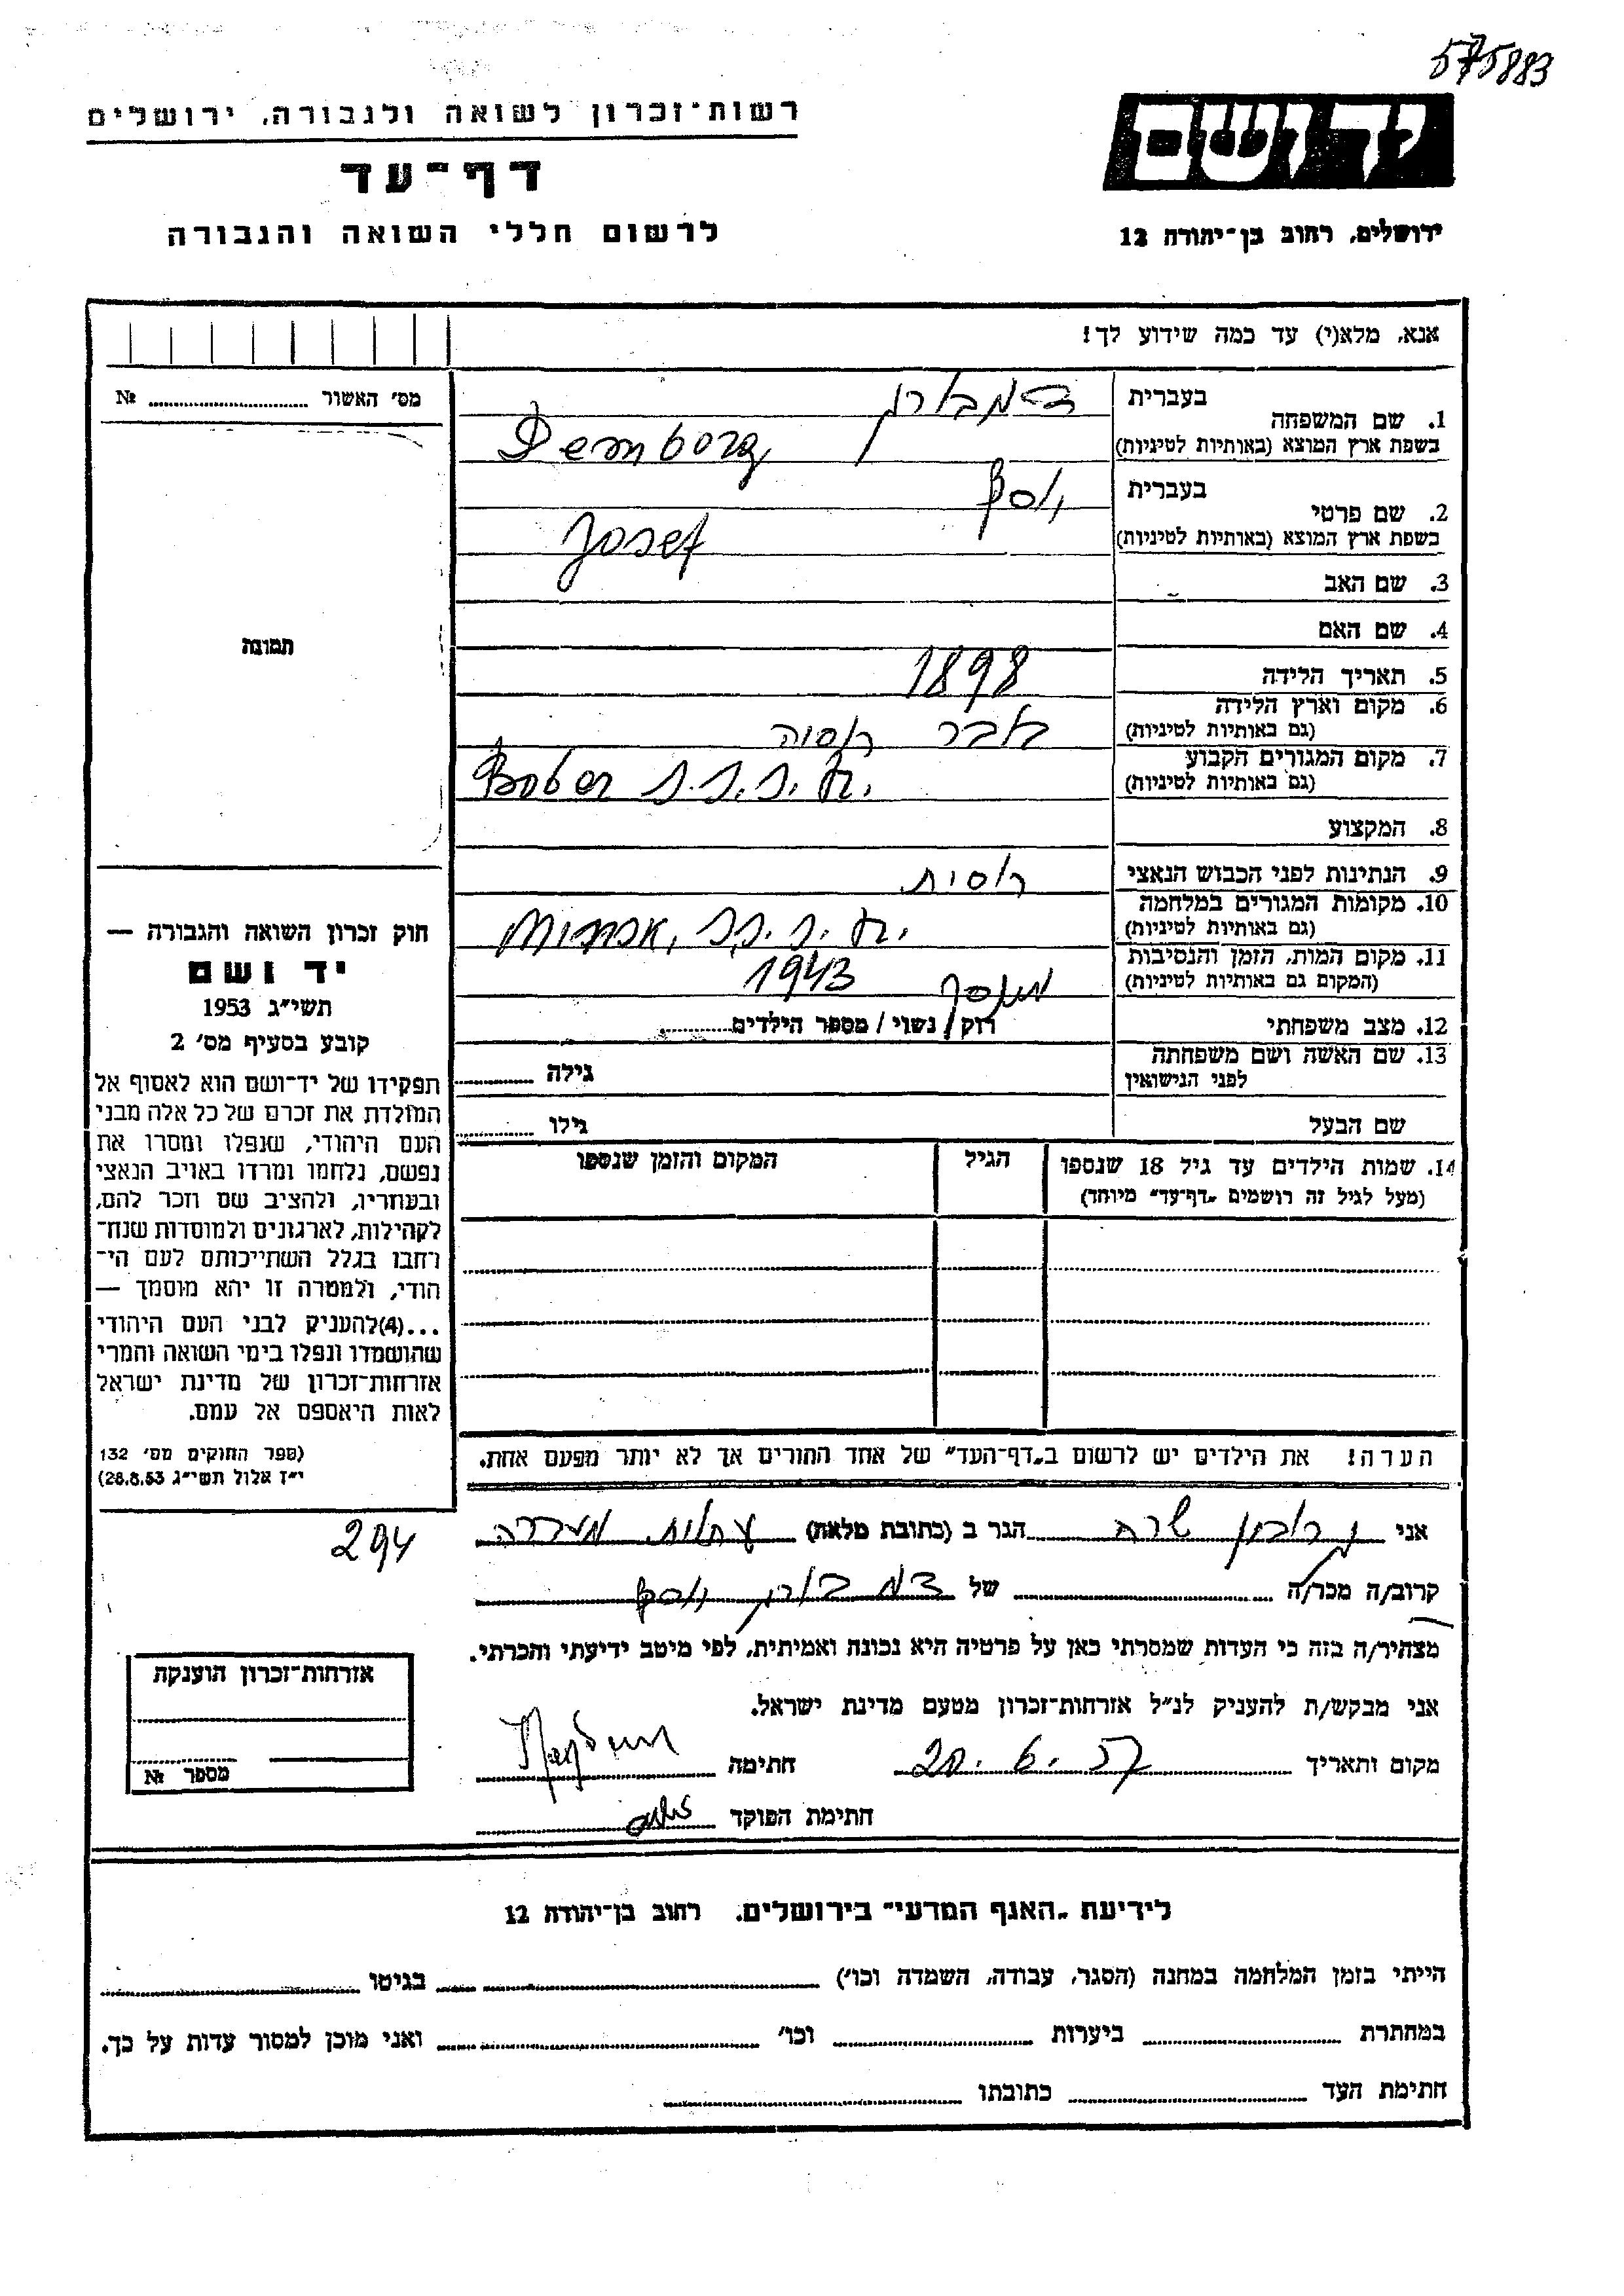 575883
רשות־זכרון לשואה ולגבורה, ירושלים
דף־עד
לרשום חללי השואה והגבורה
יד ושם
ירושלים, רחוב בן־יהודה 12
אנא, מלא(י) עד כמה שידוע לך!
מס׳ האשור № ...
1. שם המשפחה
בעברית דמבורג
בשפת ארץ המוצא (באותיות לטיניות) Demborg
2. שם פרטי
בעברית יוסף
בשפת ארץ המוצא (באותיות לטיניות) Josef
3. שם האב
4. שם האם
5. תאריך הלידה 1898
6. מקום וארץ הלידה
(גם באותיות לטיניות) בובר רוסיה
7. מקום המגורים הקבוע
(גם באותיות לטיניות) Bober
8. המקצוע
9. הנתינות לפני הכבוש הנאצי רוסית
10. מקומות המגורים במלחמה
(גם באותיות לטיניות)
11. מקום המות, הזמן והנסיבות
(המקום גם באותיות לטיניות) 1943
12. מצב משפחתי רווק / נשוי / מספר הילדים
13. שם האשה ושם משפחתה
לפני הנישואין גילה
שם הבעל גילו
14. שמות הילדים עד גיל 18 שנספו הגיל המקום והזמן שנספו
(מעל לגיל זה רושמים „דף־עד״ מיוחד)
הערה! את הילדים יש לרשום ב„דף־העד״ של אחד ההורים אך לא יותר מפעם אחת.
תמונה
חוק זכרון השואה והגבורה —
יד ושם
תשי״ג 1953
קובע בסעיף מס׳ 2
תפקידו של יד־ושם הוא לאסוף אל
המולדת את זכרם של כל אלה מבני
העם היהודי, שנפלו ומסרו את
נפשם, נלחמו ומרדו באויב הנאצי
ובעוזריו, ולהציב שם וזכר להם,
לקהילות, לארגונים ולמוסדות שנח־
רבו בגלל השתייכותם לעם הי־
הודי, ולמטרה זו יהא מוסמך —
...(4)להעניק לבני העם היהודי
שהושמדו ונפלו בימי השואה והמרי
אזרחות־זכרון של מדינת ישראל
לאות היאספם אל עמם.
(ספר החוקים מס׳ 132
י״ז אלול תשי״ג 28.8.53)
294
אני שרה הגר ב (כתובת מלאה) עתלית מעברה
קרוב/ה מכר/ה של דמבורג יוסף
מצהיר/ה בזה כי העדות שמסרתי כאן על פרטיה היא נכונה ואמיתית, לפי מיטב ידיעתי והכרתי.
אני מבקש/ת להעניק לנ״ל אזרחות־זכרון מטעם מדינת ישראל.
מקום ותאריך 20.6.57 חתימה
חתימת הפוקד
אזרחות־זכרון הוענקה
מספר №
לידיעת „האגף המדעי״ בירושלים, רחוב בן־יהודה 12
הייתי בזמן המלחמה במחנה (הסגר, עבודה, השמדה וכו׳) בגיטו
במחתרת ביערות וכו׳ ואני מוכן למסור עדות על כך.
חתימת העד כתובתו